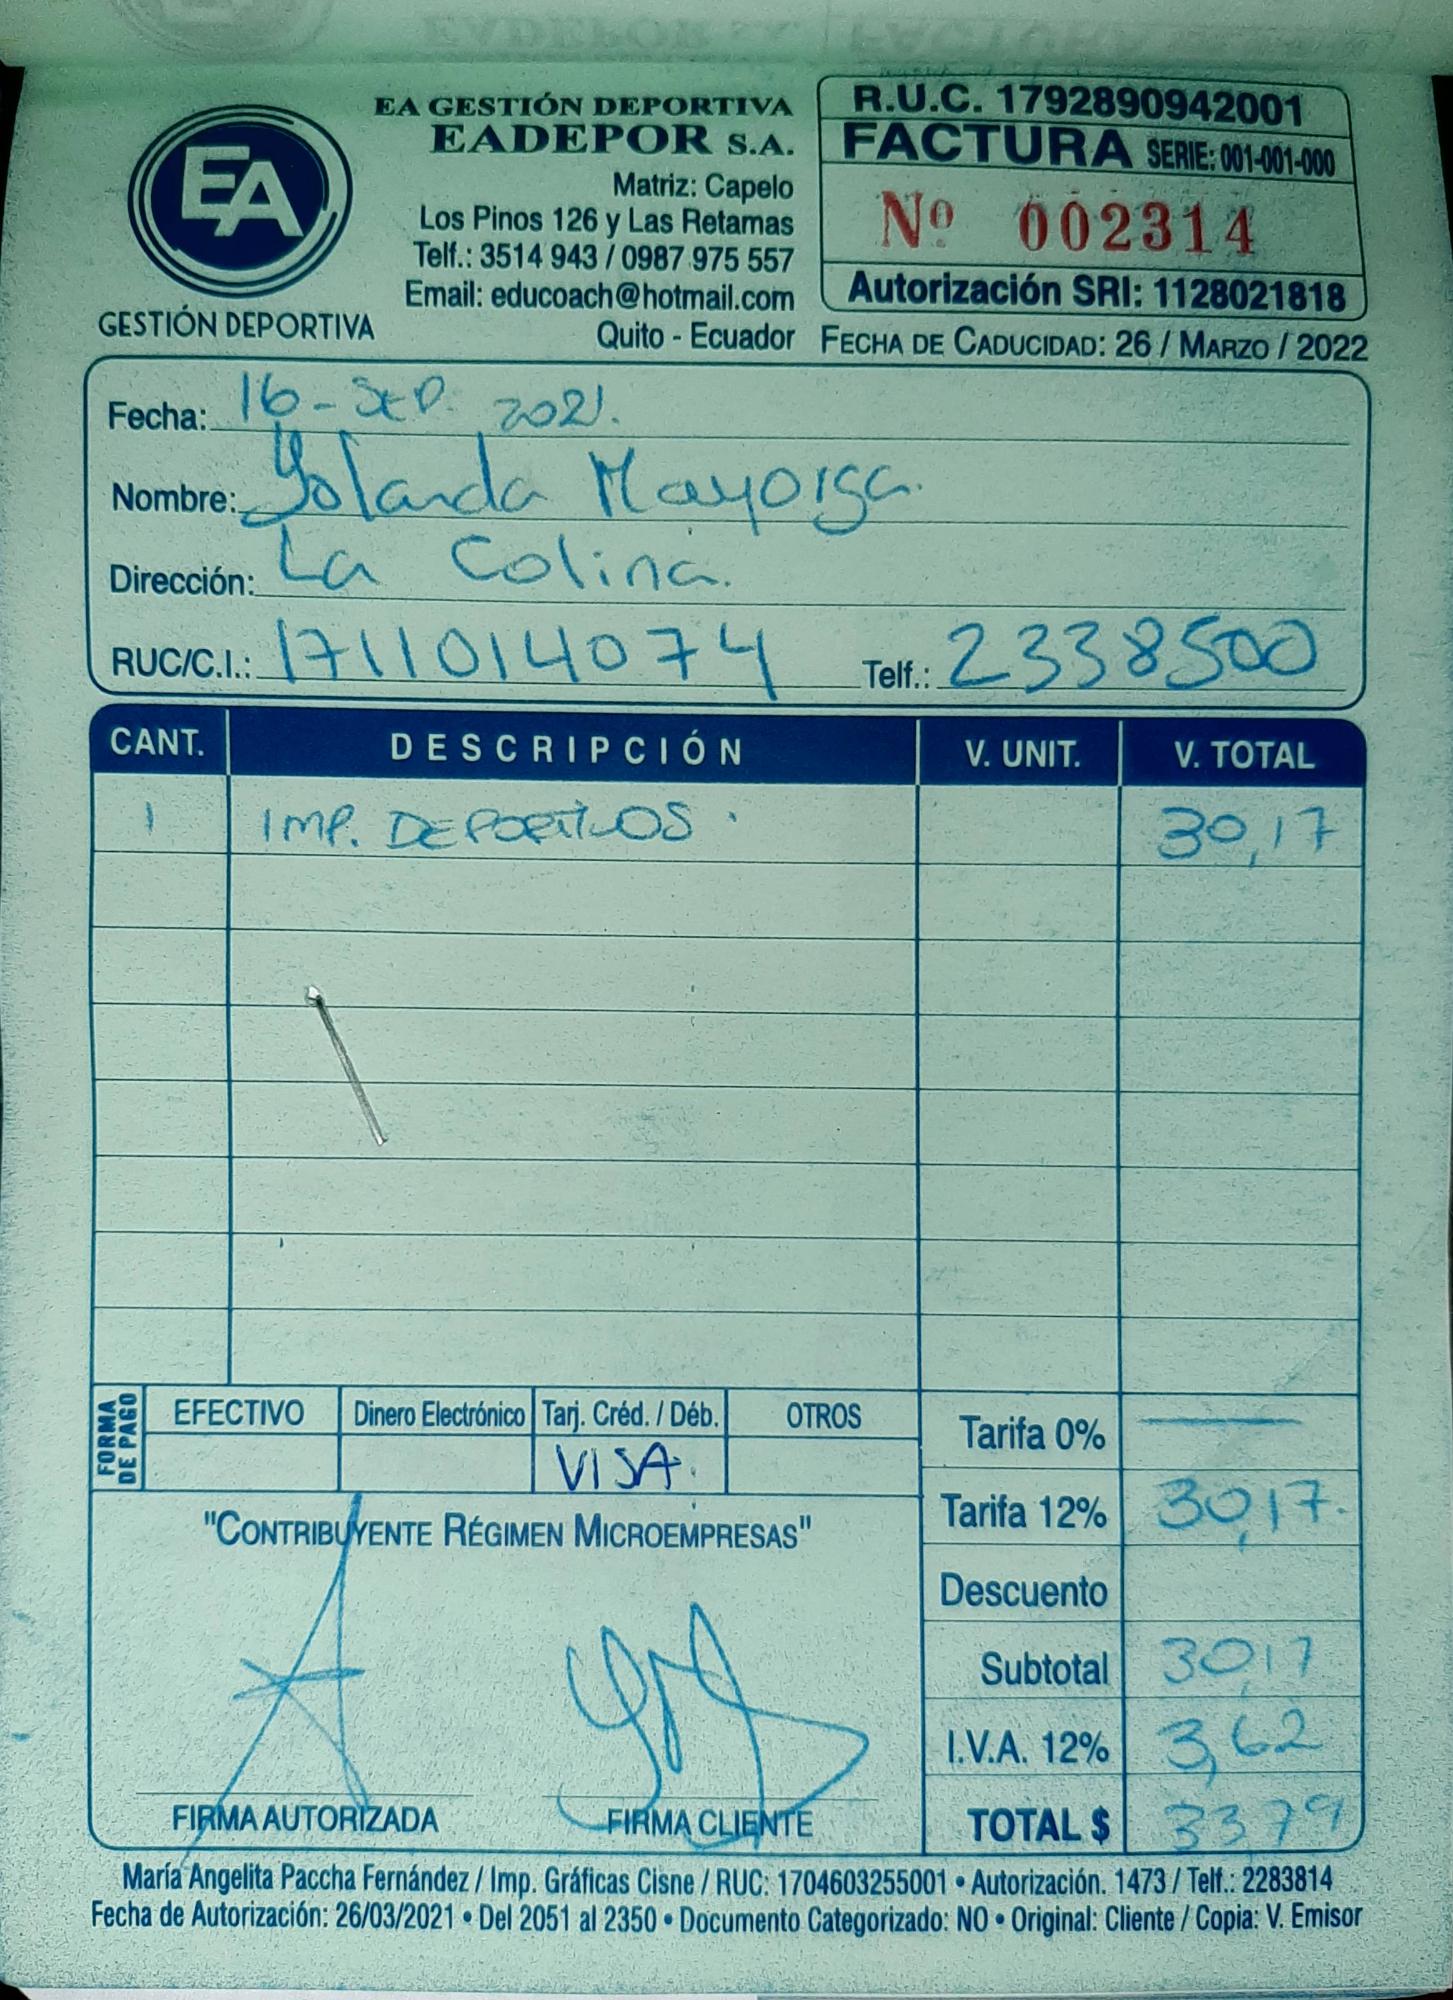 EA GESTIÓN DEPORTIVA
EADEPOR S.A.
Matriz: Capelo
Los Pinos 126 y Las Retamas
Telf.: 3514 943 / 0987 975 557
Email: educoach@hotmail.com
Quito - Ecuador
EA
GESTIÓN DEPORTIVA
R.U.C. 1792890942001
FACTURA SERIE: 001-001-000
Nº 002314
Autorización SRI: 1128021818
FECHA DE CADUCIDAD: 26 / MARZO / 2022
Fecha: 16 - SEP. 2021.
Nombre: Yolanda Mayorga.
Dirección: La Colina.
RUC/C.I.: 1711014074 Telf.: 2338500
CANT. DESCRIPCIÓN V. UNIT. V. TOTAL
1 IMP. DEPORTIVOS. 30,17
FORMA DE PAGO
EFECTIVO Dinero Electrónico Tarj. Créd. / Déb. OTROS
VISA.
Tarifa 0% —
Tarifa 12% 30,17.
Descuento
Subtotal 30,17
I.V.A. 12% 3,62
TOTAL $ 33,79
"CONTRIBUYENTE RÉGIMEN MICROEMPRESAS"
FIRMA AUTORIZADA FIRMA CLIENTE
María Angelita Paccha Fernández / Imp. Gráficas Cisne / RUC: 1704603255001 • Autorización. 1473 / Telf.: 2283814
Fecha de Autorización: 26/03/2021 • Del 2051 al 2350 • Documento Categorizado: NO • Original: Cliente / Copia: V. Emisor